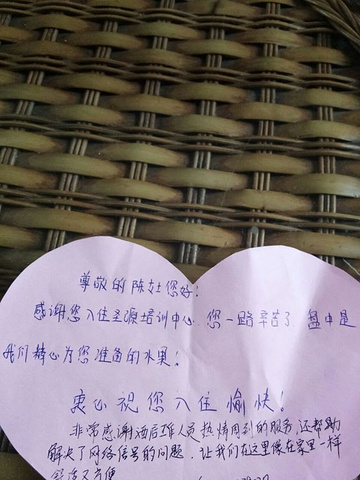 尊敬的陈女士您好!
感谢您入住圣源培训中心,您一路辛苦了,盘中是
我们精心为您准备的水果!
衷心祝您入住愉快!
非常感谢酒店工作人员热情周到的服务,还帮助
解决了网络信号的问题,让我们在这里像在家里一样
舒适又方便